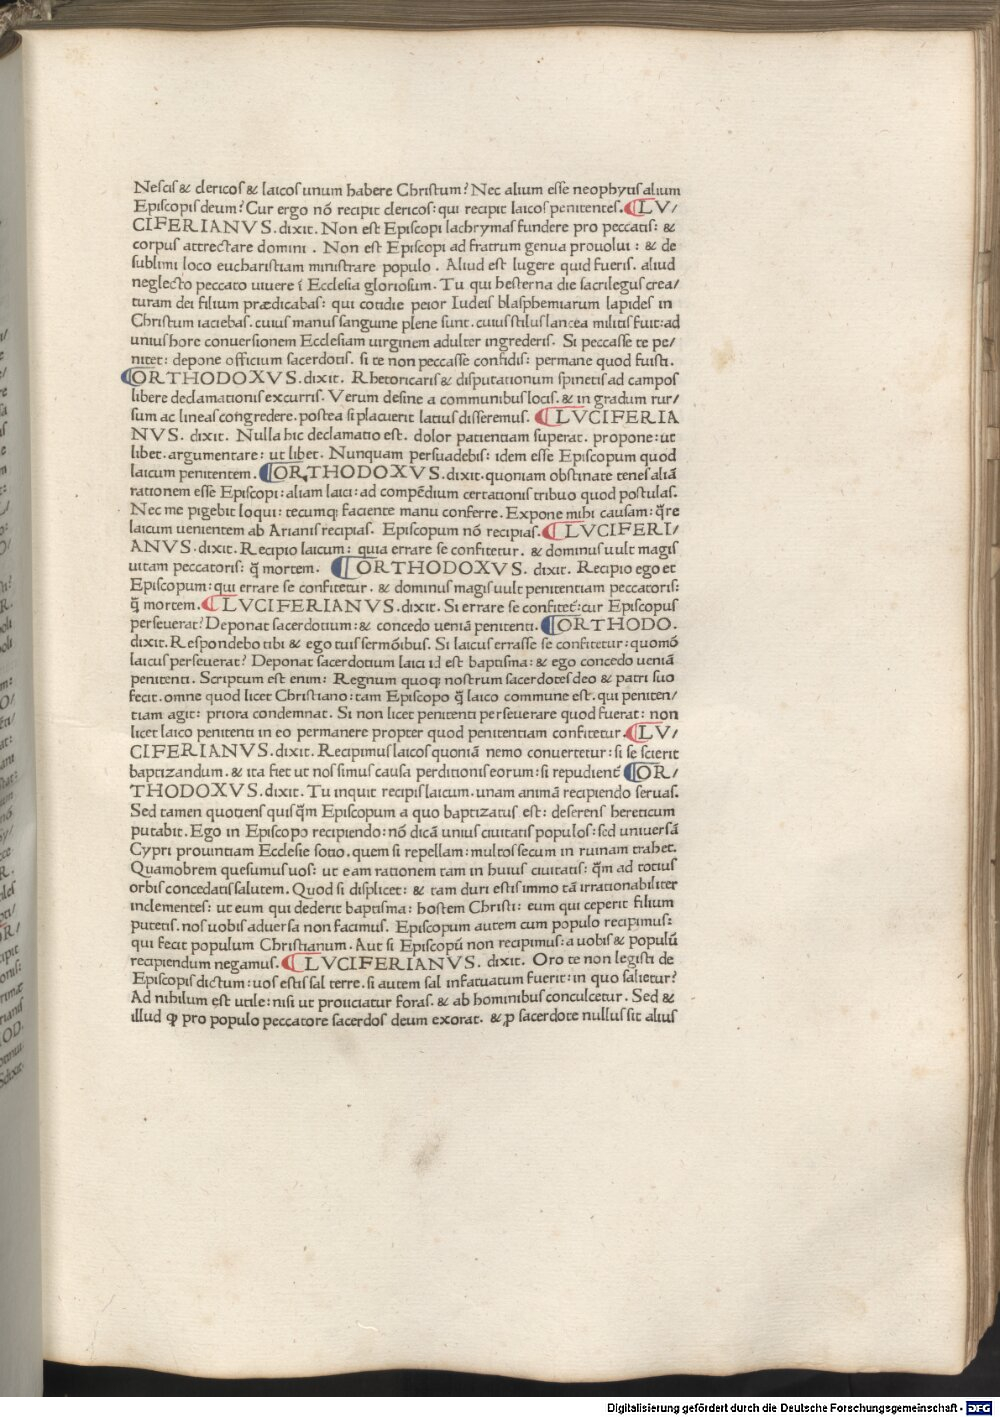 Nescis & clericos & laicos unum habere Christum? Nec alium esse neophytis alium
Episcopis deum? Cur ergo nō recipit clericos: qui recipit laicos penitentes. ¶LV/
CIFERIANVS. dixit. Non est Episcopi lachrymas fundere pro peccatis: &
corpus attrectare domini . Non est Episcopi ad fratrum genua prouolui : & de
sublimi loco eucharistiam ministrare populo . Aliud est lugere quid fueris. aliud
neglecto peccato uiuere ī Ecclesia gloriosum. Tu qui hesterna die sacrilegus crea/
turam dei filium prædicabas: qui cotidie peior Iudeis blasphemiarum lapides in
Christum iaciebas. cuius manus sanguine plene sunt. cuius stilus lancea militis fuit: ad
unius hore conuersionem Ecclesiam uirginem adulter ingrederis. Si peccasse te pe/
nitet: depone officium sacerdotis. si te non peccasse confidis: permane quod fuisti.
¶ORTHODOXVS. dixit. Rhetoricaris & disputationum spinetis ad campos
libere declamationis excurris. Verum desine a communibus locis. & in gradum rur/
sum ac lineas congredere. postea si placuerit latius disseremus. ¶LVCIFERIA
NVS. dixit. Nulla hic declamatio est. dolor patientiam superat. propone: ut
libet. argumentare: ut libet. Nunquam persuadebis: idem esse Episcopum quod
laicum penitentem. ¶ORTHODOXVS. dixit. quoniam obstinate tenes aliā
rationem esse Episcopi: aliam laici: ad compēdium certationis tribuo quod postulas.
Nec me pigebit loqui: tecumq; faciente manu conferre. Expone mihi causam: q̄re
laicum uenientem ab Arianis recipias. Episcopum nō recipias. ¶LVCIFERI/
ANVS. dixit. Recipio laicum: quia errare se confitetur. & dominus uult magis
uitam peccatoris: q̄ mortem. ¶ORTHODOXVS. dixit. Recipio ego et
Episcopum: qui errare se confitetur. & dominus magis uult penitentiam peccatoris:
q̄ mortem. ¶LVCIFERIANVS. dixit. Si errare se confitet̄: cur Episcopus
perseuerat? Deponat sacerdotium: & concedo ueniā penitenti. ¶ORTHODO.
dixit. Respondebo tibi & ego tuis sermōibus. Si laicus errasse se confitetur: quomō
laicus perseuerat? Deponat sacerdotium laici id est baptisma: & ego concedo ueniā
penitenti. Scriptum est enim: Regnum quoq; nostrum sacerdotes deo & patri suo
fecit. omne quod licet Christiano: tam Episcopo q̄ laico commune est. qui peniten/
tiam agit: priora condemnat. Si non licet penitenti perseuerare quod fuerat: non
licet laico penitenti in eo permanere propter quod penitentiam confitetur. ¶LV/
CIFERIANVS. dixit. Recipimus laicos quoniā nemo conuertetur: si se scierit
baptizandum. & ita fiet ut nos simus causa perditionis eorum: si repudient̄ ¶OR/
THODOXVS. dixit. Tu inquit recipis laicum. unam animā recipiendo seruas.
Sed tamen quotiens quisq̄m Episcopum a quo baptizatus est: deserens hereticum
putabit. Ego in Episcopo recipiendo: nō dicā unius ciuitatis populos: sed uniuersā
Cypri prouintiam Ecclesie sotio. quem si repellam: multos secum in ruinam trahet.
Quamobrem quesumus uos: ut eam rationem tam in huius ciuitatis: q̄m ad totius
orbis concedatis salutem. Quod si displicet: & tam duri estis immo tā irrationabiliter
inclementes: ut eum qui dederit baptisma: hostem Christi: eum qui ceperit filium
putetis. nos uobis aduersa non facimus. Episcopum autem cum populo recipimus:
qui fecit populum Christianum. Aut si Episcopū non recipimus: a uobis & populū
recipiendum negamus. ¶LVCIFERIANVS. dixit. Oro te non legisti de
Episcopis dictum: uos estis sal terre. si autem sal infatuatum fuerit: in quo salietur?
Ad nihilum est utile: nisi ut proiiciatur foras. & ab hominibus conculcetur. Sed &
illud ꝙ pro populo peccatore sacerdos deum exorat. & ꝓ sacerdote nullus sit alius
Digitalisierung gefördert durch die Deutsche Forschungsgemeinschaft - DFG